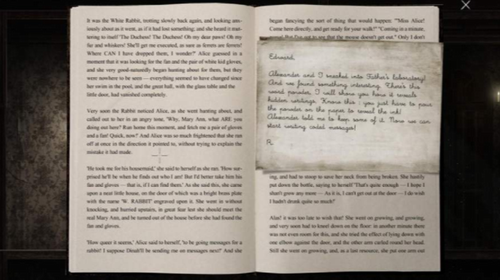 It was the White Rabbit, trotting slowly back again, and looking anx-
iously about as it went, as if it had lost something; and she heard it mut-
tering to itself 'The Duchess! The Duchess! Oh my dear paws! Oh my
fur and whiskers! She'll get me executed, as sure as ferrets are ferrets!
Where CAN I have dropped them, I wonder?' Alice guessed in a
moment that it was looking for the fan and the pair of white kid gloves,
and she very good-naturedly began hunting about for them, but they
were nowhere to be seen — everything seemed to have changed since
her swim in the pool, and the great hall, with the glass table and the
little door, had vanished completely.
Very soon the Rabbit noticed Alice, as she went hunting about, and
called out to her in an angry tone, 'Why, Mary Ann, what ARE you
doing out here? Run home this moment, and fetch me a pair of gloves
and a fan! Quick, now!' And Alice was so much frightened that she ran
off at once in the direction it pointed to, without trying to explain the
mistake it had made.
'He took me for his housemaid,' she said to herself as she ran. 'How sur-
prised he'll be when he finds out who I am! But I'd better take him his
fan and gloves — that is, if I can find them.' As she said this, she came
upon a neat little house, on the door of which was a bright brass plate
with the name 'W. RABBIT' engraved upon it. She went in without
knocking, and hurried upstairs, in great fear lest she should meet the
real Mary Ann, and be turned out of the house before she had found the
fan and gloves.
'How queer it seems,' Alice said to herself, 'to be going messages for a
rabbit! I suppose Dinah'll be sending me on messages next!' And she
began fancying the sort of thing that would happen: '"Miss Alice!
Come here directly, and get ready for your walk!" "Coming in a minute,
Edward,
Alexander and I sneaked into Father's laboratory!
And we found something interesting. There's this
weird powder, I will show you how it reveals
hidden writings. Know this : you just have to pour
the powder on the paper to reveal the ink!
Alexander told me to keep some of it. Now we can
start writing coded messages!
R.
ing, and had to stoop to save her neck from being broken. She hastily
put down the bottle, saying to herself 'That's quite enough — I hope I
shan't grow any more — As it is, I can't get out at the door — I do wish
I hadn't drunk quite so much!'
Alas! it was too late to wish that! She went on growing, and growing,
and very soon had to kneel down on the floor: in another minute there
was not even room for this, and she tried the effect of lying down with
one elbow against the door, and the other arm curled round her head.
Still she went on growing, and, as a last resource, she put one arm out